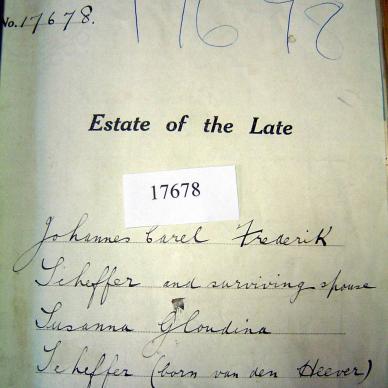 No. 17678.
17678
Estate of the Late
17678
Johannes Carel Frederik
Scheffer and surviving spouse
Susanna Gloudina
Scheffer (born van den Heever)